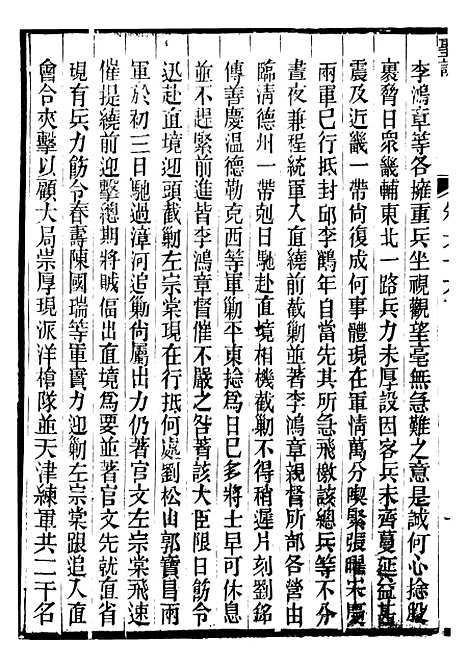 聖訓
李鴻章等各擁重兵坐視觀望毫無急難之意是誠何心捻股
裹脅日衆畿輔東北一路兵力未厚設因客兵未齊蔓延益甚
震及近畿一帶尙復成何事體現在軍情萬分喫緊張曜宋慶
兩軍已行抵封邱李鶴年自當先其所急飛檄該總兵等不分
晝夜兼程統軍入直繞前截勦並著李鴻章親督所部各營由
臨淸德州一帶剋日馳赴直境相機截勦不得稍遲片刻劉銘
傳善慶溫德勒克西等軍勦平東捻為日已多將士早可休息
並不趕緊前進皆李鴻章督催不嚴之咎著該大臣限日飭令
迅赴直境迎頭截勦左宗棠現在行抵何處劉松山郭寶昌兩
軍於初三日馳過漳河追勦尙屬出力仍著官文左宗棠飛速
催提繞前迎擊總期將賊偪出直境為要並著官文先就直省
現有兵力飭令春壽陳國瑞等軍實力迎勦左宗棠跟追入直
會合夾擊以顧大局崇厚現派洋槍隊並天津練軍共二千名